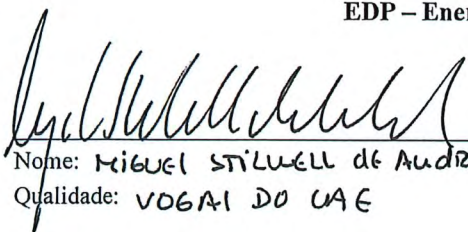 EDP – Ener
Nome: MiGUEl STiLWELL dE AndR
Qualidade: VOGAl DO CAE